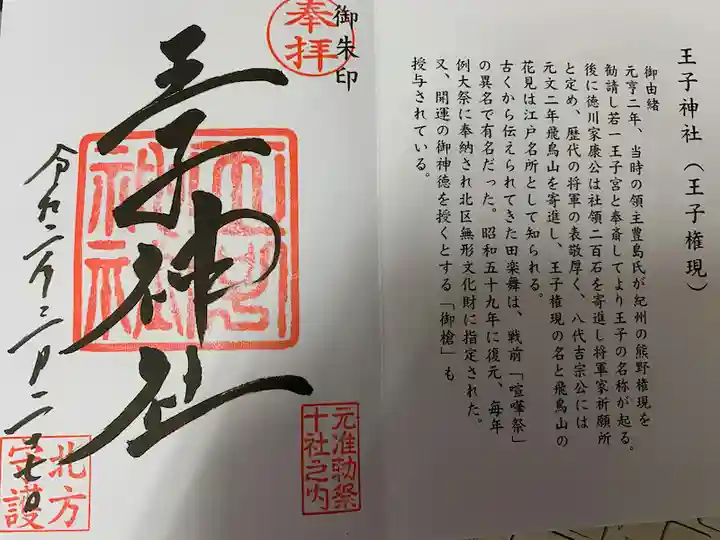 王子神社(王子権現)
御由緒
元亨二年、当時の領主豊島氏が紀州の熊野権現を
勧請し若一王子宮と奉斎してより王子の名称が起る。
後に徳川家康公は社領二百石を寄進し将軍家祈願所
と定め、歴代の将軍の表敬厚く、八代吉宗公には
元文二年飛鳥山を寄進し、王子権現の名と飛鳥山の
花見は江戸名所として知られる。
古くから伝えられてきた田楽舞は、戦前「喧嘩祭」
の異名で有名だった。昭和五十九年に復元、毎年
例大祭に奉納され北区無形文化財に指定された。
又、開運の御神徳を授くとする「御槍」も
授与されている。
御朱印
奉拝
王子神社
元准勅祭
十社之内
令和二年三月二十七日
北方
守護